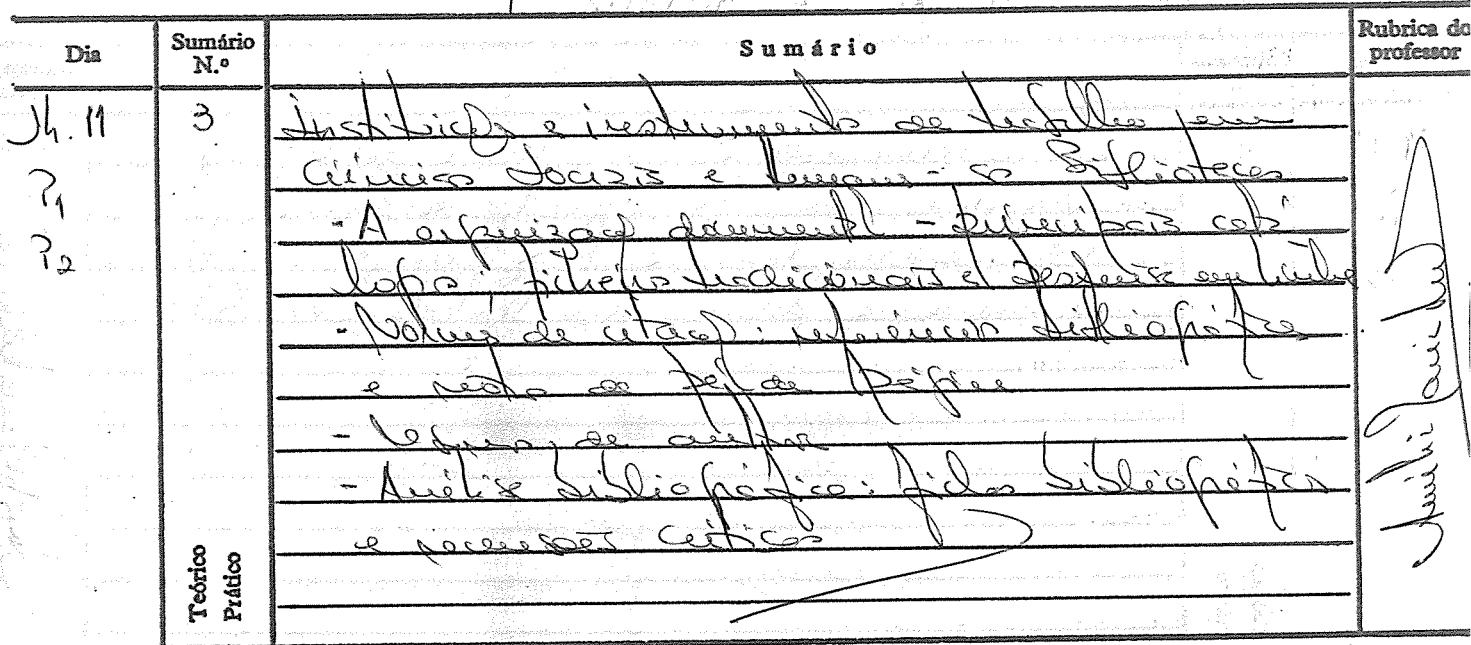 Dia
Sumário N.º
Sumário
Rubrica do professor
3
Instituições e instrumentos de trabalho em
Ciências Sociais e Humanas - as Bibliotecas
- A organização documental - principais catá
logos; ficheiros tradicionais e
- Normas de citação: referências bibliográficas
e notas de pé de página
-
- Análise bibliográfica: fichas bibliográficas
e recensões críticas
Teórico
Prático